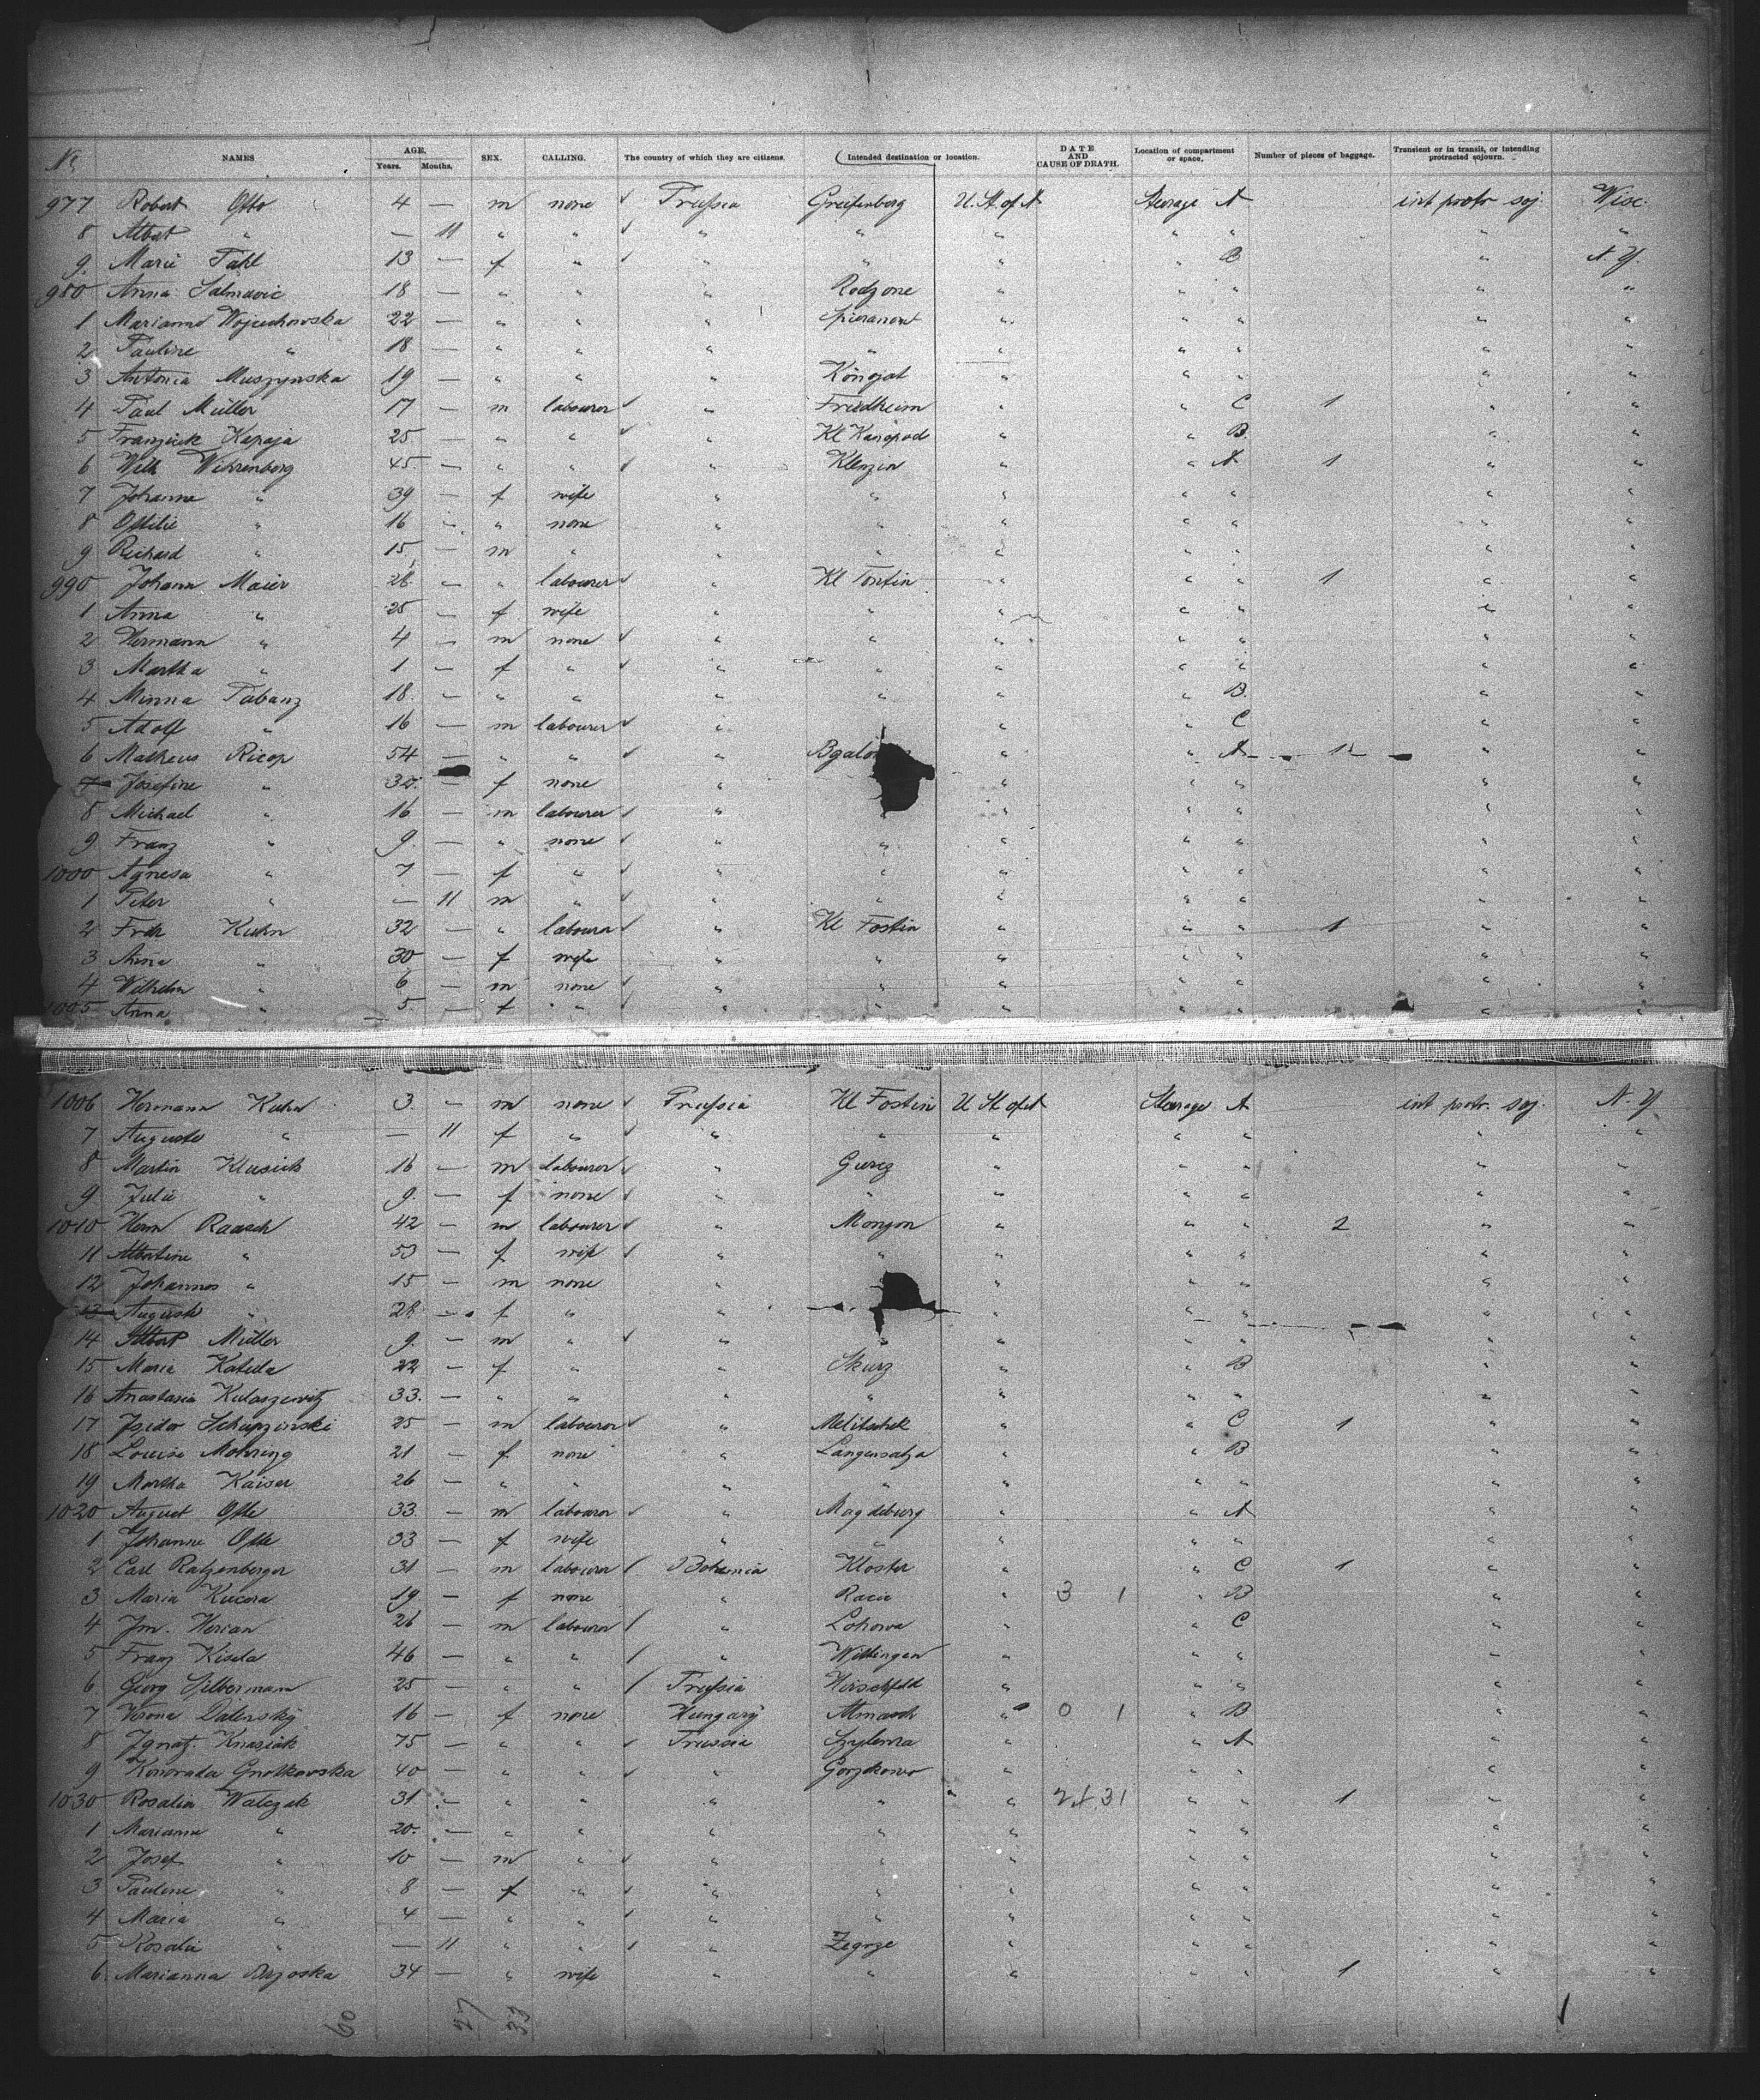 No. NAMES AGE. Years. Months. SEX. CALLING. The country of which they are citizens. Intended destination or location. DATE AND CAUSE OF DEATH. Location of compartment or space. Number of pieces of baggage. Transient or in transit, or intending protracted sojourn.
977 Robert Otto 4 — m none ✓ Prussia Greifenberg U. St. of A Steerage A int protr soj. Wisc.
8 Albert " — 11 " " ✓ " " " " " " "
9. Marie Fahl 13 — f " ✓ " " " " B " N. Y.
980 Anna Salmavic 18 — " " " Rodzone " " " " "
1 Marianna Wojciechowska 22 — " " " " " " " "
2 Pauline " 18 — " " " " " " " " "
3 Antonia Muszynska 19 — " " " Könojat " " " " "
4 Paul Müller 17 — m labourer ✓ " Friedheim " " C 1 " "
5 Kapaja 25 — " " ✓ " Kl " " B. " "
6 Wilh 45 — " " ✓ " Klenzin " " A 1 " "
7 Johanne " 39 — f wife " " " " " " "
8 Ottilie " 16 — " none " " " " " " "
9 Richard " 15 — m " " " " " " " "
990 Johann Maier 28 — " labourer ✓ " Kl " " " 1 " "
1 Anna " 25 — f wife " " " " " " "
2 Hermann " 4 — m none ✓ " " " " " " "
3 Martha " 1 — f " ✓ " " " " " " "
4 Minna Tabanz 18 — " " " " " " B. " "
5 Adolf " 16 — m labourer ✓ " " " C " "
6 Matheus Ricop 54 — " " ✓ " " " A 1 " "
7 Josefine " — f none " " " " " "
8 Michael " 16 — m labourer ✓ " " " " " " "
9 Franz " 9. — " none ✓ " " " " " " "
1000 Agnesa " 7 — f " ✓ " " " " " " "
1 Peter " — 11 m " ✓ " " " " " " "
2 Kuhn 32 — " labourer ✓ " Kl Fostin " " " 1 " "
3 Anna " 30 — f wife " " " " " " "
4 Wilhelm " 6 — m none ✓ " " " " " " "
1005 Anna " 5. — f " ✓ " " " " "
1006 Hermann Kuhn 3. — m none ✓ Prussia Kl Fostin U St. of A Steerage A int protr. soj. N. Y
7 Auguste " — 11 f " ✓ " " " " " " "
8 Martin Klusick 16 — m labourer ✓ " " " " " "
9 Julie " 9. — f none ✓ " " " " " " "
1010 Herm Raasch 42 — m labourer ✓ " " " " 2 " "
11 Albertine " 53 — f wife ✓ " " " " " " "
12 Johannes " 15 — m none " " " " " "
13 Auguste " 28 — f " " " " " " "
14 Albert Müller 9. — m " ✓ " " " " " " "
15 Maria Kateda 22 — f " " Skurz " " B " "
16 Anastasia 33. — " " " " " " " " "
17 Isidor 25 — m labourer ✓ " " " C 1 " "
18 Louise Mohring 21 — f none " Langensalza " " B " "
19 Martha Kaiser 26 — " " " " " " " " "
1020 August Otte 33. — m labourer ✓ " Magdeburg " " A " "
1 Johanne Otte 33 — f wife " " " " " " "
2 Carl Ratzenberger 31 — m labourer / Bohemia Kloster " " C 1 " "
3 Maria Kucera 19. — f none " " 3 1 " B " "
4 26 — m labourer / " " " C " "
5 Franz Kisela 46 — " " / " Wittingau " " " " "
6. Georg Silbermann 25 — " " / Prussia Hirschfeld " " " " "
7 Verona 16 — f none Hungary " 0 1 " B " "
8 Ignatz 75 — " " ✓ Prussia " " A " "
9 Konorada 40 — " " ✓ " " " " " "
1030 Rosalia Walczak 31 — " " " " " " " 1 " "
1 Marianna " 20. — " " " " " " " " "
2 Josef " 10 — m " ✓ " " " " " " "
3 Pauline " 8 — f " ✓ " " " " " " "
4 Maria " 4 — " " ✓ " " " " " " "
5 Rosalie " — 11 " " ✓ " Zegrze " " " " "
6. Marianna Brzoska 34 — " wife " " " " " 1 " "
60 27 33